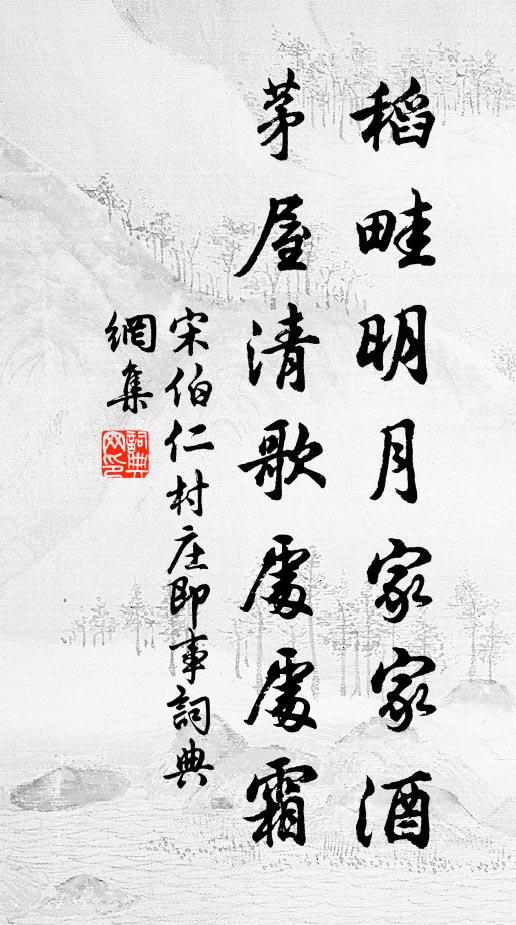 稻畦明月家家酒
茅屋清歌處處霜
宋伯仁村庄即事詞典
網集
詞典網印